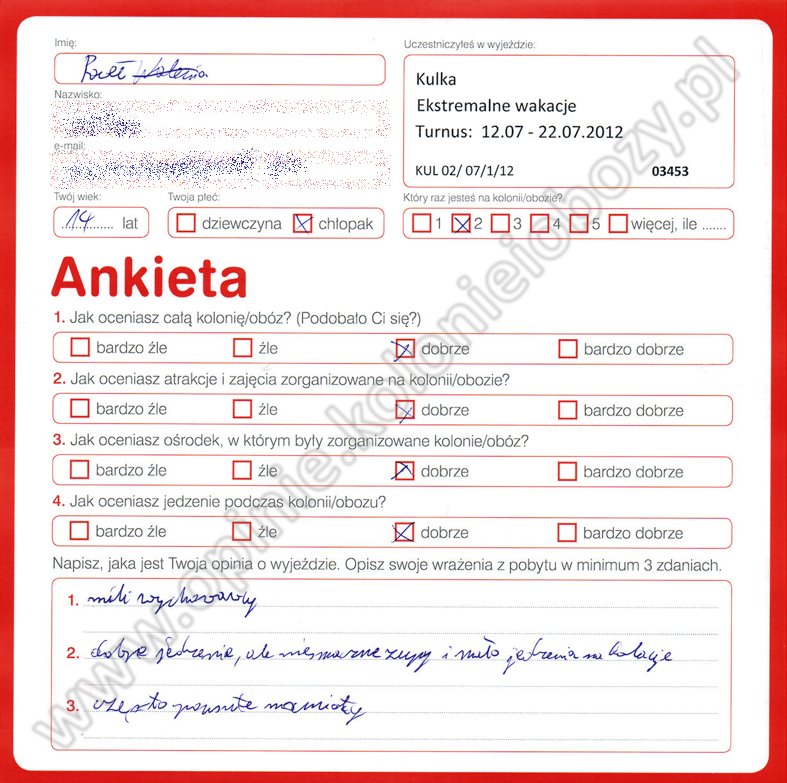 Imię:
Uczestniczyłeś w wyjeździe:
Kulka
Nazwisko:
Ekstremalne wakacje
Turnus: 12.07 - 22.07.2012
e-mail:
KUL 02/ 07/1/12 03453
Twój wiek: Twoja płeć: Który raz jesteś na kolonii/obozie?
14 lat dziewczyna chłopak 1 2 3 4 5 więcej, ile .......
Ankieta
1. Jak oceniasz całą kolonię/obóz? (Podobało Ci się?)
bardzo źle źle dobrze bardzo dobrze
2. Jak oceniasz atrakcje i zajęcia zorganizowane na kolonii/obozie?
bardzo źle źle dobrze bardzo dobrze
3. Jak oceniasz ośrodek, w którym były zorganizowane kolonie/obóz?
bardzo źle źle dobrze bardzo dobrze
4. Jak oceniasz jedzenie podczas kolonii/obozu?
bardzo źle źle dobrze bardzo dobrze
Napisz, jaka jest Twoja opinia o wyjeździe. Opisz swoje wrażenia z pobytu w minimum 3 zdaniach.
1. mili wychowawcy
2. dobre jedzenie, ale niesmaczne zupy i mało jedzenia na kolacje
3. często popsute namioty
www.opinie.kolonieiobozy.pl